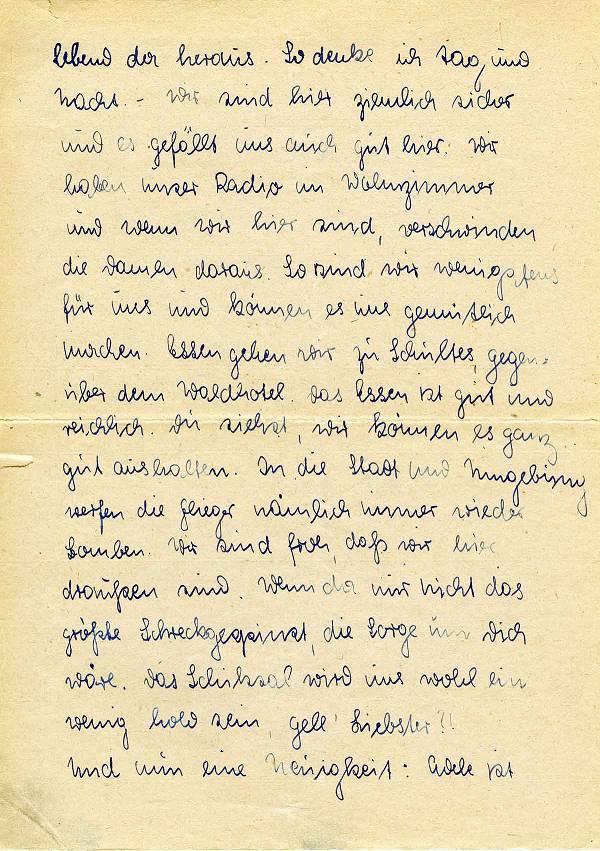 lebend da heraus. So denke ich Tag und
Nacht. – Wir sind hier ziemlich sicher
und es gefällt uns auch gut hier. Wir
haben unser Radio im Wohnzimmer
und wenn wir hier sind, verschwinden
die Damen daraus. So sind wir wenigstens
für uns und können es uns gemütlich
machen. Essen gehen wir zu Schultes, gegen=
über dem Waldhotel. Das Essen ist gut und
reichlich. Du siehst, wir können es ganz
gut aushalten. In die Stadt und Umgebung
werfen die Flieger nämlich immer wieder
Bomben. Wir sind froh, daß wir hier
draußen sind. Wenn da nur nicht das
größte Schreckgespinst, die Sorge um Dich
wäre. Das Schiksal wird uns wohl ein
wenig hold sein, gell' Liebster?!
Und nun eine Neuigkeit: Adele ist